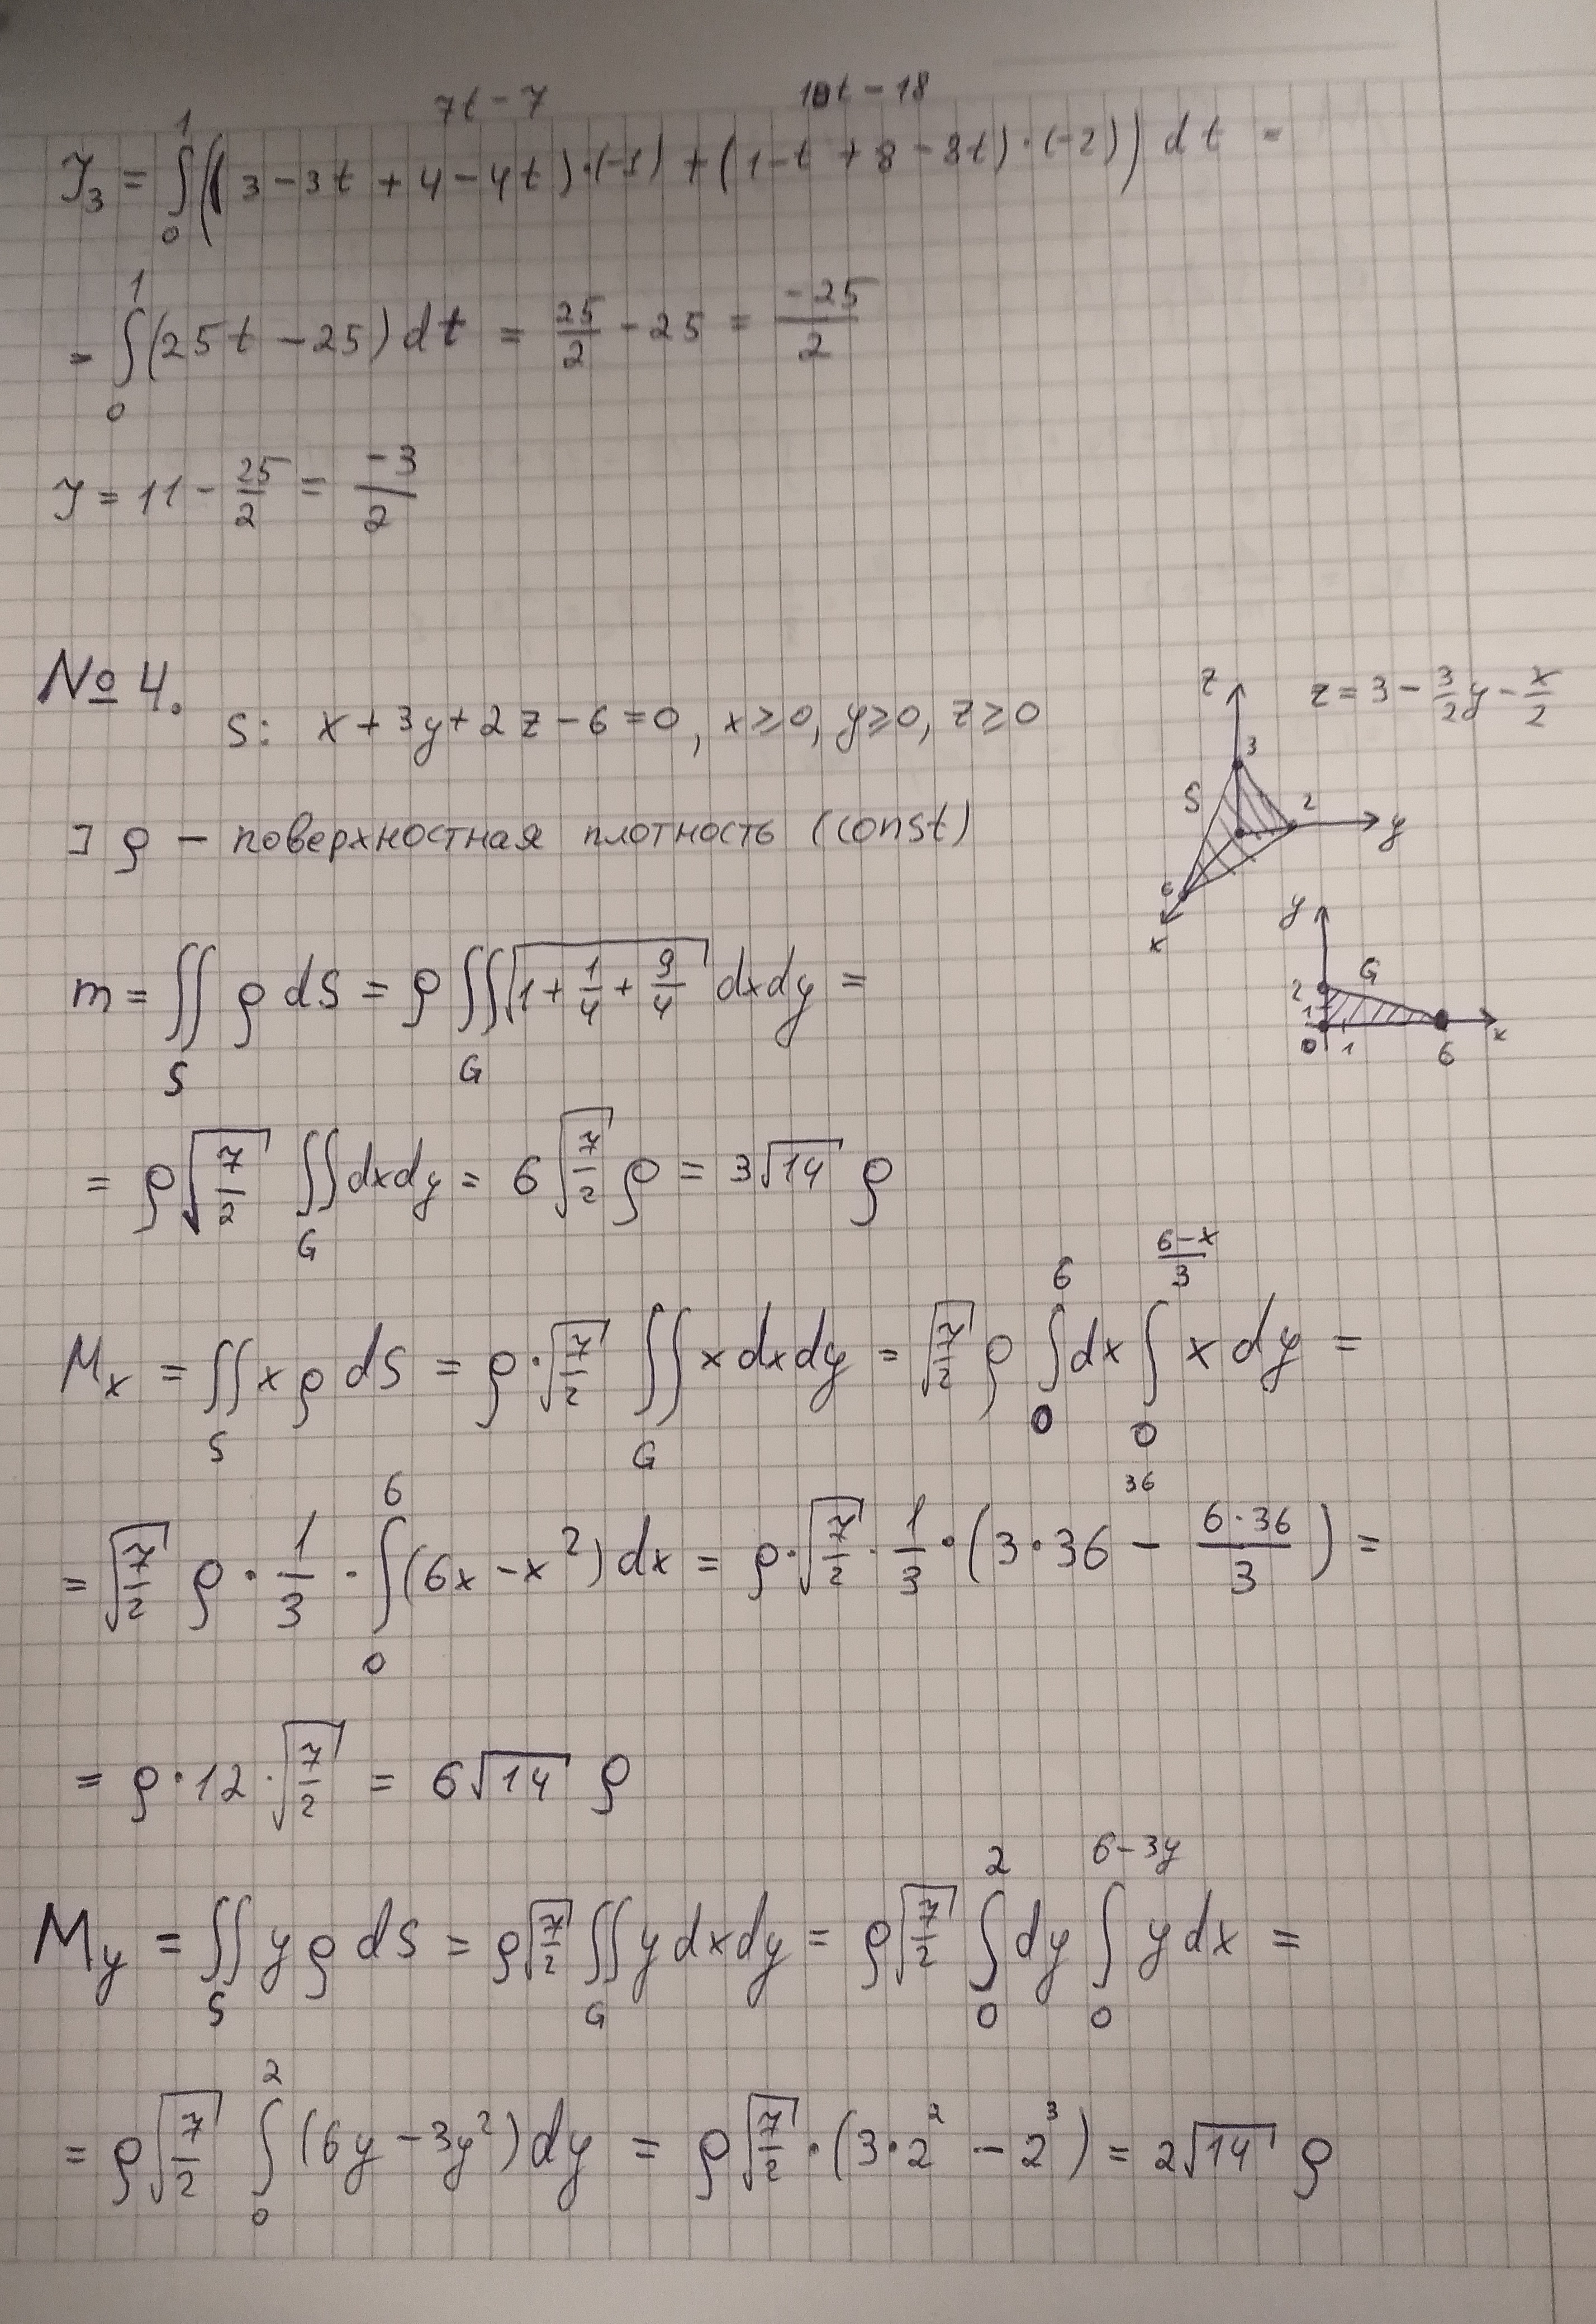 7t - 7   18t - 18
J₃ = ∫₀¹ ((3 - 3t + 4 - 4t)·(-1) + (1 - t + 8 - 8t)·(-2)) dt =
= ∫₀¹ (25t - 25) dt = 25/2 - 25 = -25/2
J = 11 - 25/2 = -3/2
№ 4.
S: x + 3y + 2z - 6 = 0, x ≥ 0, y ≥ 0, z ≥ 0
z = 3 - 3/2 y - x/2
z 3 S 2 y 6 x
∃ ρ — поверхностная плотность (const)
y 2 G 1 0 1 6 x
m = ∬_S ρ dS = ρ ∬_G √(1 + 1/4 + 9/4) dxdy =
= ρ √(7/2) ∬_G dxdy = 6 √(7/2) ρ = 3√14 ρ
Mₓ = ∬_S x ρ dS = ρ · √(7/2) ∬_G x dxdy = √(7/2) ρ ∫₀⁶ dx ∫₀^((6-x)/3) x dy =
36
= √(7/2) ρ · 1/3 · ∫₀⁶ (6x - x²) dx = ρ · √(7/2) · 1/3 · (3·36 - 6·36/3) =
= ρ · 12 · √(7/2) = 6√14 ρ
M_y = ∬_S y ρ dS = ρ √(7/2) ∬_G y dxdy = ρ √(7/2) ∫₀² dy ∫₀^(6-3y) y dx =
= ρ √(7/2) ∫₀² (6y - 3y²) dy = ρ √(7/2) · (3·2² - 2³) = 2√14 ρ